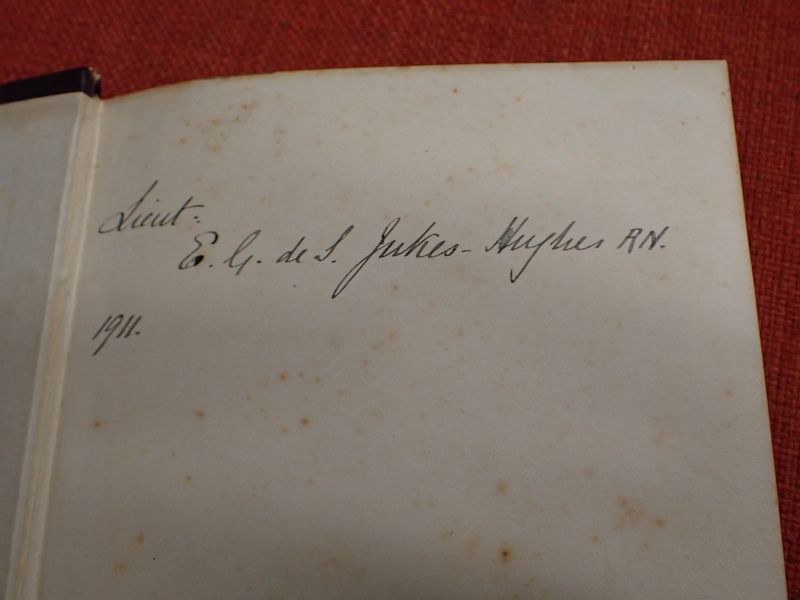 Lieut:
E. G. de S. Jukes-Hughes RN.
1911.